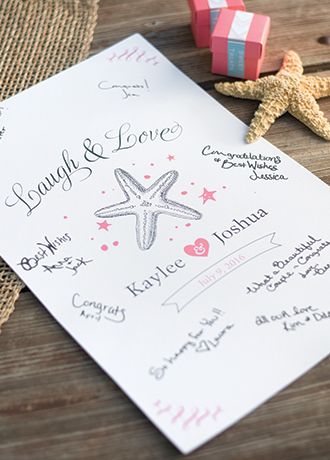 Congrats!
Jen
Laugh & Love
Congratulations
& Best Wishes
Jessica
Best Wishes
& Jack
Kaylee & Joshua
July 9, 2016
What a Beautiful
Couple ~ Congrats
Congrats
April
So happy for You!!
Laura
all our love